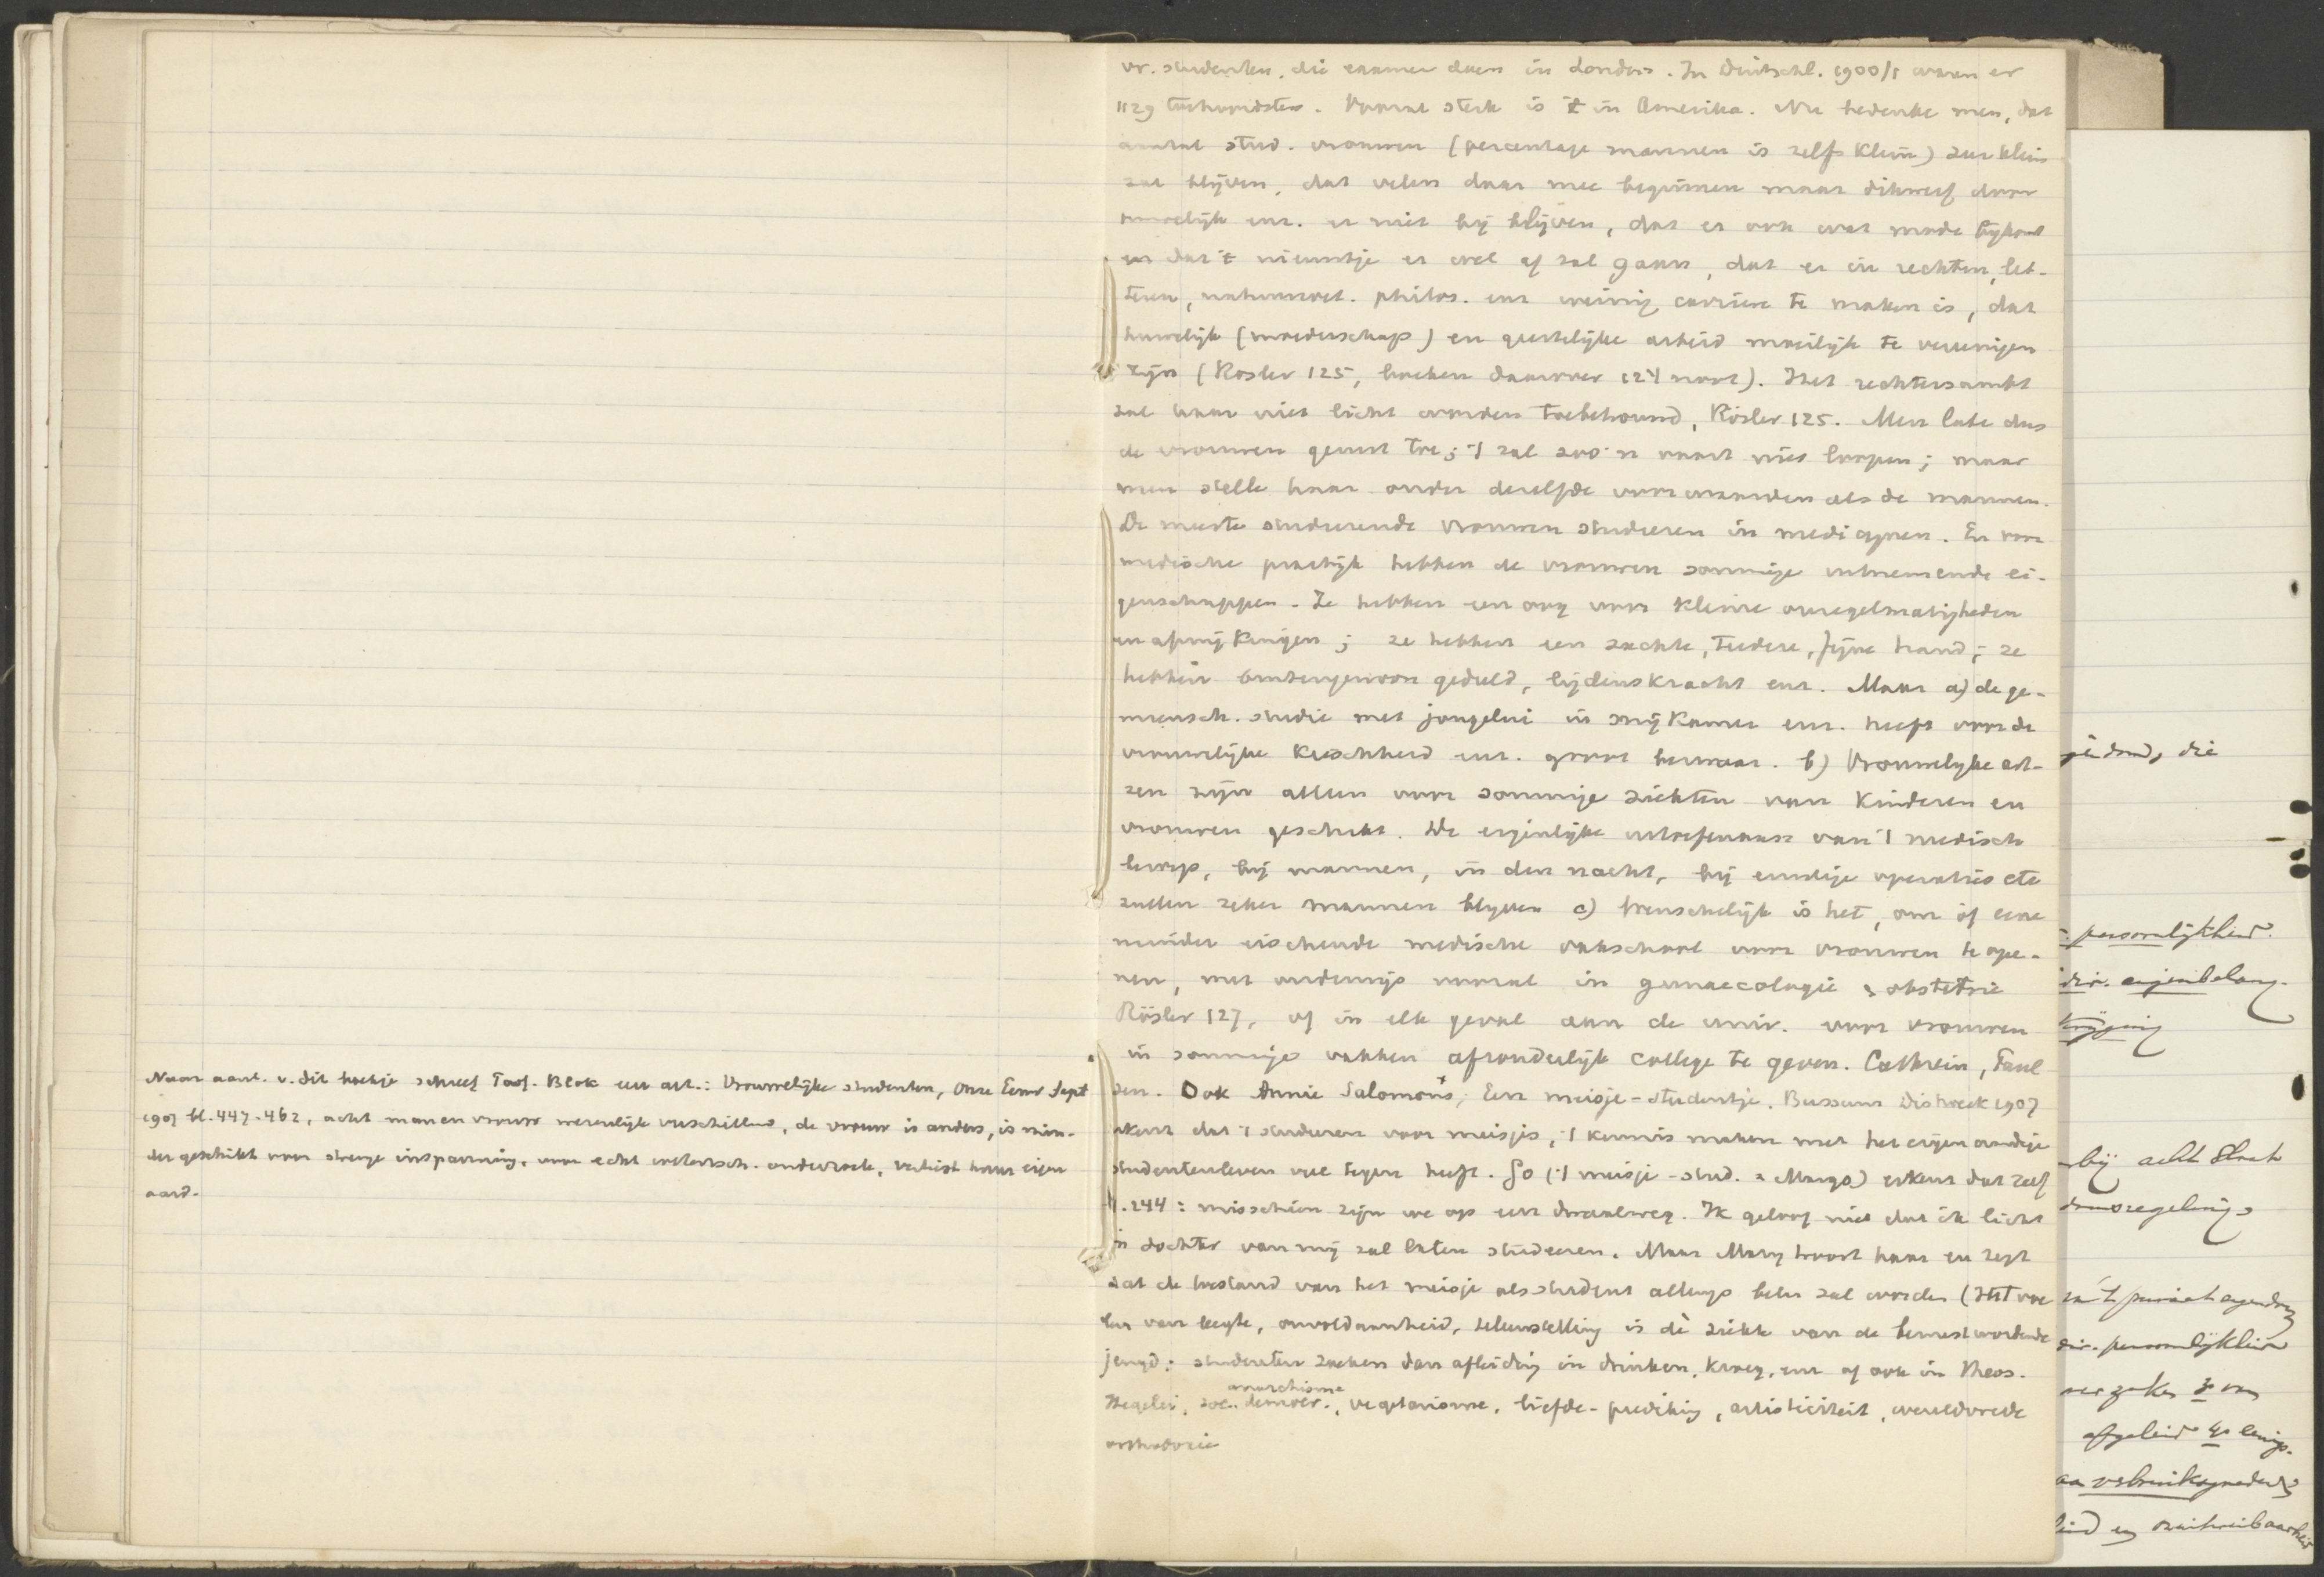 Naar aanl. v. dit boekje schreef Prof. Blok een art.: Vrouwelijke studenten, Onze Eeuw Sept
1907 bl. 447-462, acht man en vrouw wezenlijk verschillend, de vrouw is anders, is min-
der geschikt voor strenge inspanning, voor echt wetensch. onderzoek, verliest haar eigen
aard.
vr. studenten, die examen doen in Londen. In Duitschl. 1900/1 waren er
1129 toehoordsters. Vooral sterk is 't in Amerika. Nu bedenke men, dat
aantal stud. vrouwen (percentage mannen is zelfs klein) zeer klein
zal blijven, dat velen daar mee beginnen maar dikwerf door
huwelijk enz. er niet bij blijven, dat er ook wat mode bijkomt
en dat 't nieuwtje er wel af zal gaan, dat er in rechten, let-
teren, natuurwet. philos. enz weinig carrière te maken is, dat
huwelijk (moederschap) en geestelijke arbeid moeilijk te vereenigen
zijn (Rösler 125, boeken daarover 124 noot). Het rechtersambt
zal haar niet licht worden toebetrouwd, Rösler 125. Men late dus
de vrouwen gerust toe; 't zal zoo'n vaart niet loopen; maar
men stelle haar onder dezelfde voorwaarden als de mannen.
De meeste studeerende vrouwen studeeren in medicijnen. En voor
medische praktijk hebben de vrouwen sommige uitnemende ei-
genschappen. Ze hebben een oog voor kleine onregelmatigheden
en afwijkingen; ze hebben een zachte, teedere, fijne hand; ze
hebben buitengewoon geduld, lijdenskracht enz. Maar a) de ge-
meensch. studie met jongelui in snijkamer enz. heeft voor de
vrouwelijke kuischheid enz. groot bezwaar. b) Vrouwelijke art-
sen zijn alleen voor sommige ziekten van kinderen en
vrouwen geschikt. De eigenlijke uitoefenaars van 't medisch
beroep, bij mannen, in den nacht, bij ernstige operaties etc
zullen zeker mannen blijven c) Wenschelijk is het, om òf eene
minder eischende medische vakschool voor vrouwen te ope-
nen, met onderwijs vooral in gynaecologie & obstetrie
Rösler 127, of in elk geval aan de univ. voor vrouwen
in sommige vakken afzonderlijk college te geven. Cathrein, Paul
sen. Ook Annie Salomons, Een meisje-studentje. Bussum Dishoeck 1907
erkent dat 't studeeren voor meisjes, 't kennis maken met het eigenaardige
studentenleven veel tegen heeft. Go ('t meisje-stud. = Margo) erkent dat zelf
bl. 244: misschien zijn we op een dwaalweg. Ik geloof niet dat ik licht
'n dochter van mij zal laten studeeren. Maar Mary troost haar en zegt
dat de toestand van het meisje als student allengs beter zal worden (Het voe
len van leegte, onvoldaanheid, teleurstelling is dè ziekte van de bewustwordende
jeugd: studenten zoeken dan afleiding in drinken, kroeg, enz of ook in theos.
Hegelei, soc. democr., anarchisme, vegetarisme, liefde-prediking, artisticiteit, wereldvrede
orthodoxie
die
persoonlijkheid.
div. eigenbelang.
bij acht Slach
div. persoonlijkheid
afgeleid